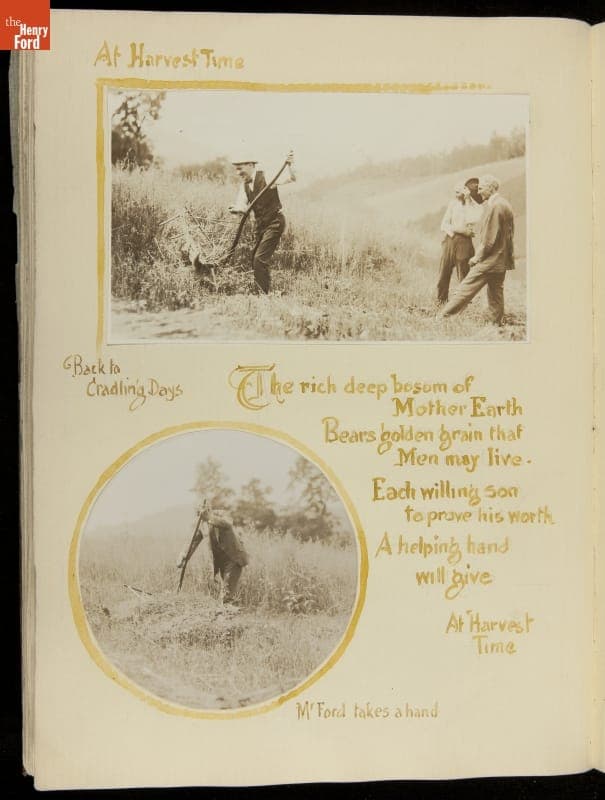 the
Henry
Ford
At Harvest Time
Back to
Cradling Days
The rich deep bosom of
Mother Earth
Bears golden grain that
Men may live.
Each willing son
to prove his worth
A helping hand
will give
At Harvest
Time
Mr Ford takes a hand